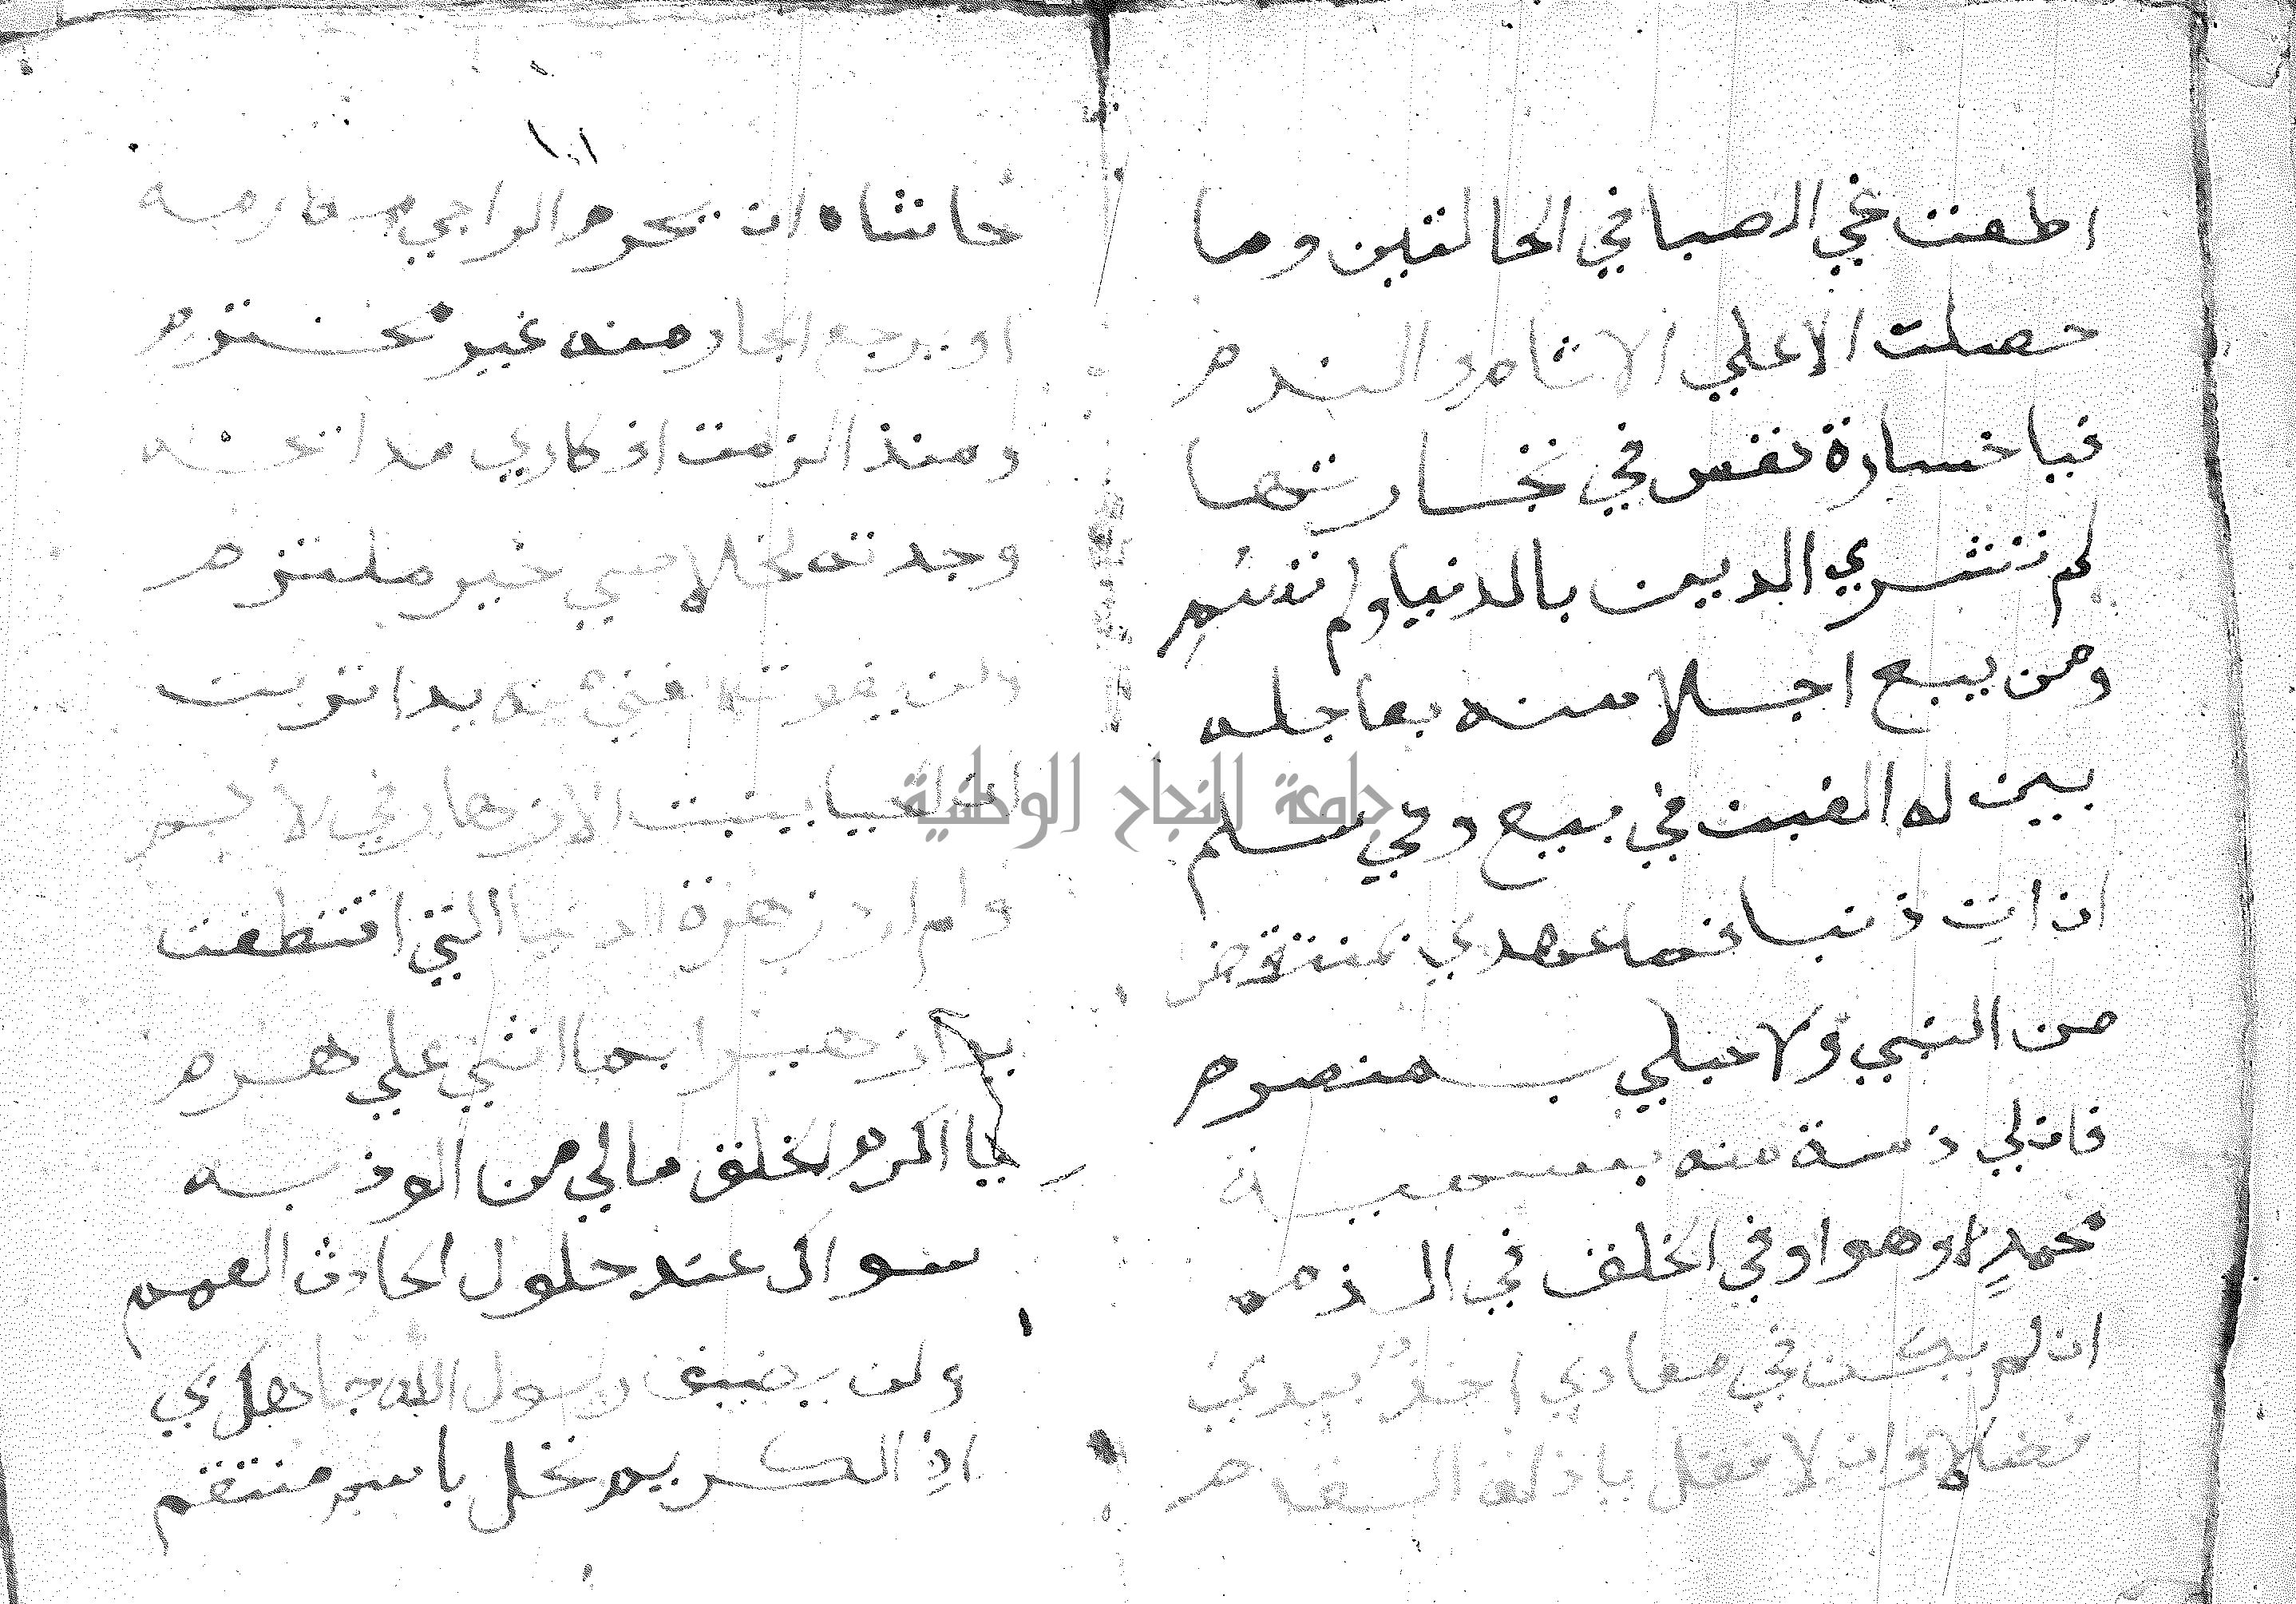 اطعت غي الصبا في الحالتين وما
حصلت الا علي الاثام والندم
فيا خسارة نفس في تجارتها
لم تشتري الدين بالدنيا ولم تسم
ومن يبع اجلا منه بعاجله
يبين له الغبن في بيع وفي سلم
ان ات ذنبا فما عهدي بمنتقض
من النبي ولا حبلي بمنصرم
فان لي ذمة منه بتسميتة
محمدٍ وهو اوفي الخلف في الذمم
ان لم يكن في معادي اخذٌ بيدي
فضلا وان لا فقل يا زلف القدم
١٠١
حاشاه ان يحرم الراجي مكارمه
او يرجع الجار منه غير محتترم
ومنذ الزمت افكاري مدائحه
وجدته لخلاصي خير ملتزم
ولن يفوت الغني منه يدا تربت
ان الحيا ينبت الازهار في الاكم
ولم ارد زهرة الدنيا التي اقتطفت
يدا زهير بما اثني علي هرم
يا اكرم الخلق مالي من الوذ به
سواك عند حلول الحادث العمم
ولن يضيق رسول الله جاهك بي
اذ الكريم تحل باسم منتقم
جامعة النجاح الوطنية